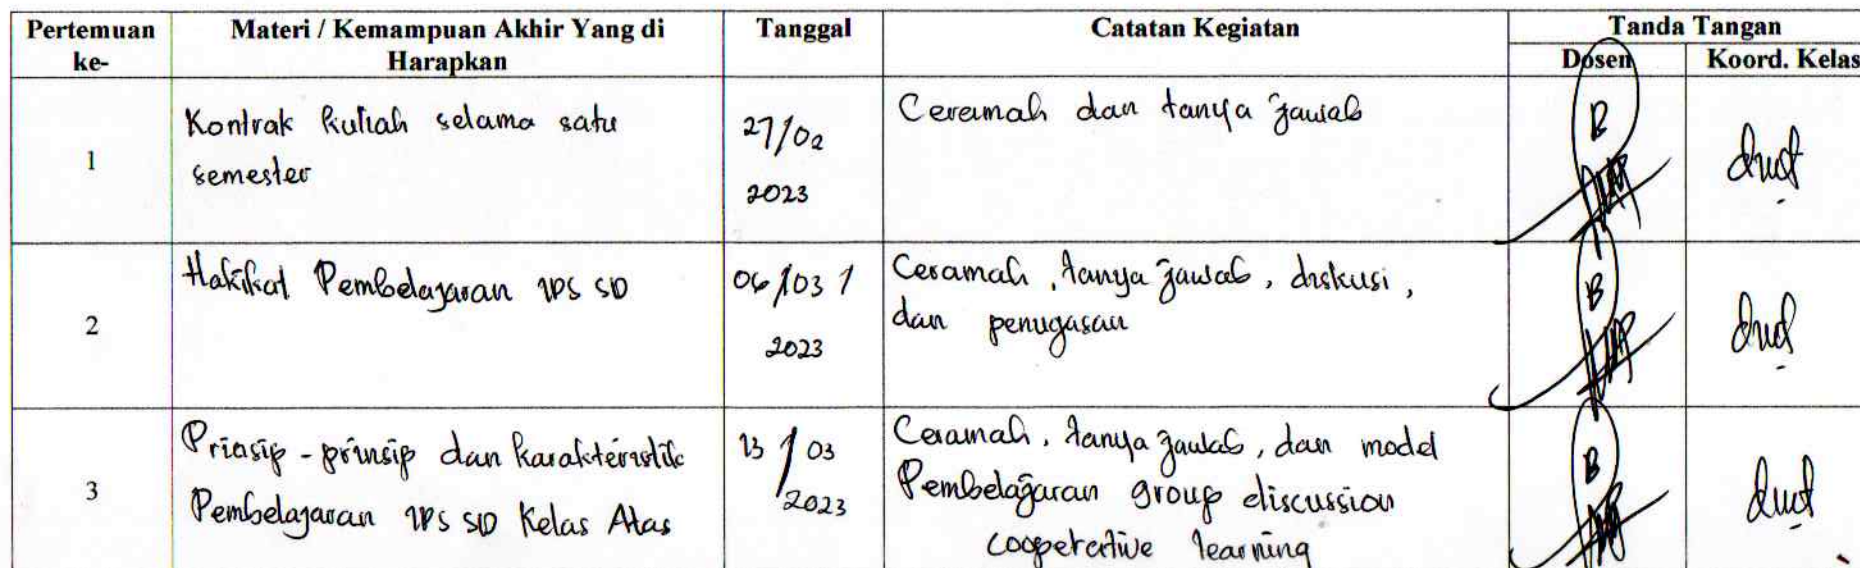 Pertemuan ke-
Materi / Kemampuan Akhir Yang di Harapkan
Tanggal
Catatan Kegiatan
Tanda Tangan
Dosen
Koord. Kelas
1
Kontrak kuliah selama satu
semester
27/02
2023
Ceramah dan tanya jawab
2
Hakikat Pembelajaran IPS SD
06/03 /
2023
Ceramah, tanya jawab, diskusi,
dan penugasan
3
Prinsip - prinsip dan karakteristik
Pembelajaran IPS SD Kelas Atas
13 / 03
2023
Ceramah, tanya jawab, dan model
Pembelajaran group discussion
cooperative learning